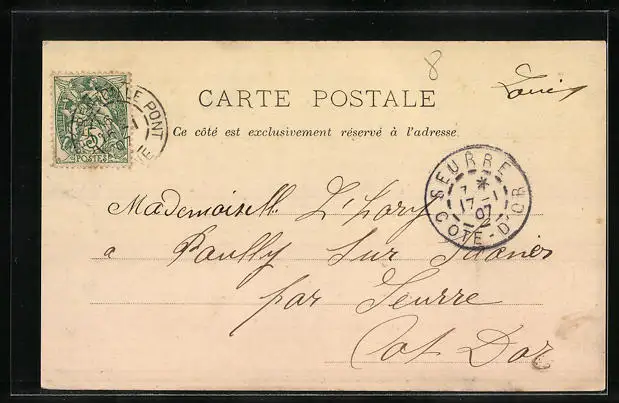 8
CARTE POSTALE
Ce côté est exclusivement réservé à l'adresse
LE PONT
5
POSTES
SEURRE
17 - 1
07
COTE-D'OR
Mademoiselle L'Hory
a Pouilly Sur Saone
par Seurre
Cot Dor